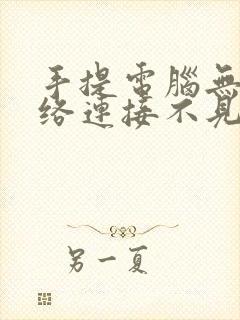 手提電腦無
络連接不見
另一夏